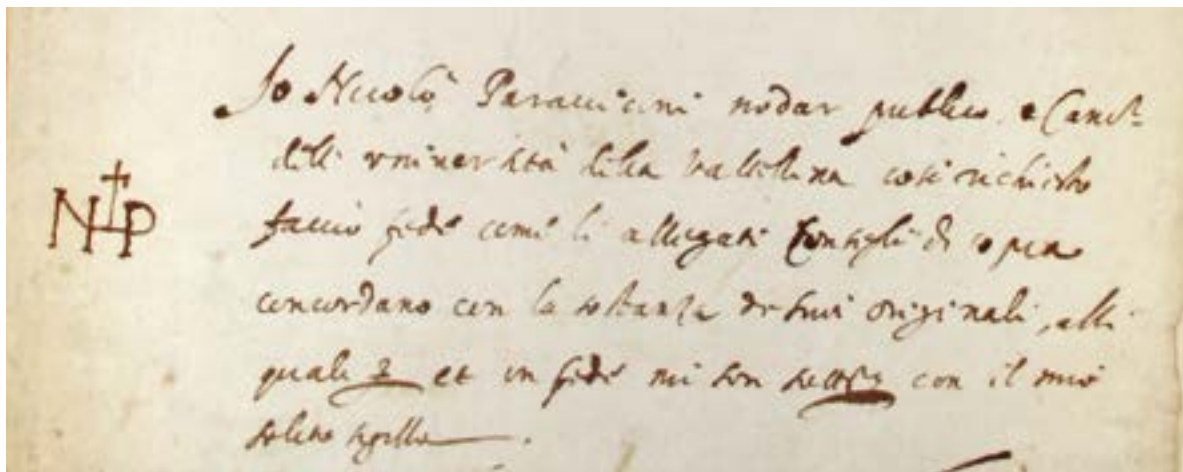 Io Nicolò Paravicini nodar publico e Canc.r
dell' università della Valtellina così richiesto
faccio fede come li allegati Consigli di copia
concordano con la sostanza de suoi originali, alli
quali et in fede mi son con il mio
solito sigillo.
NLP